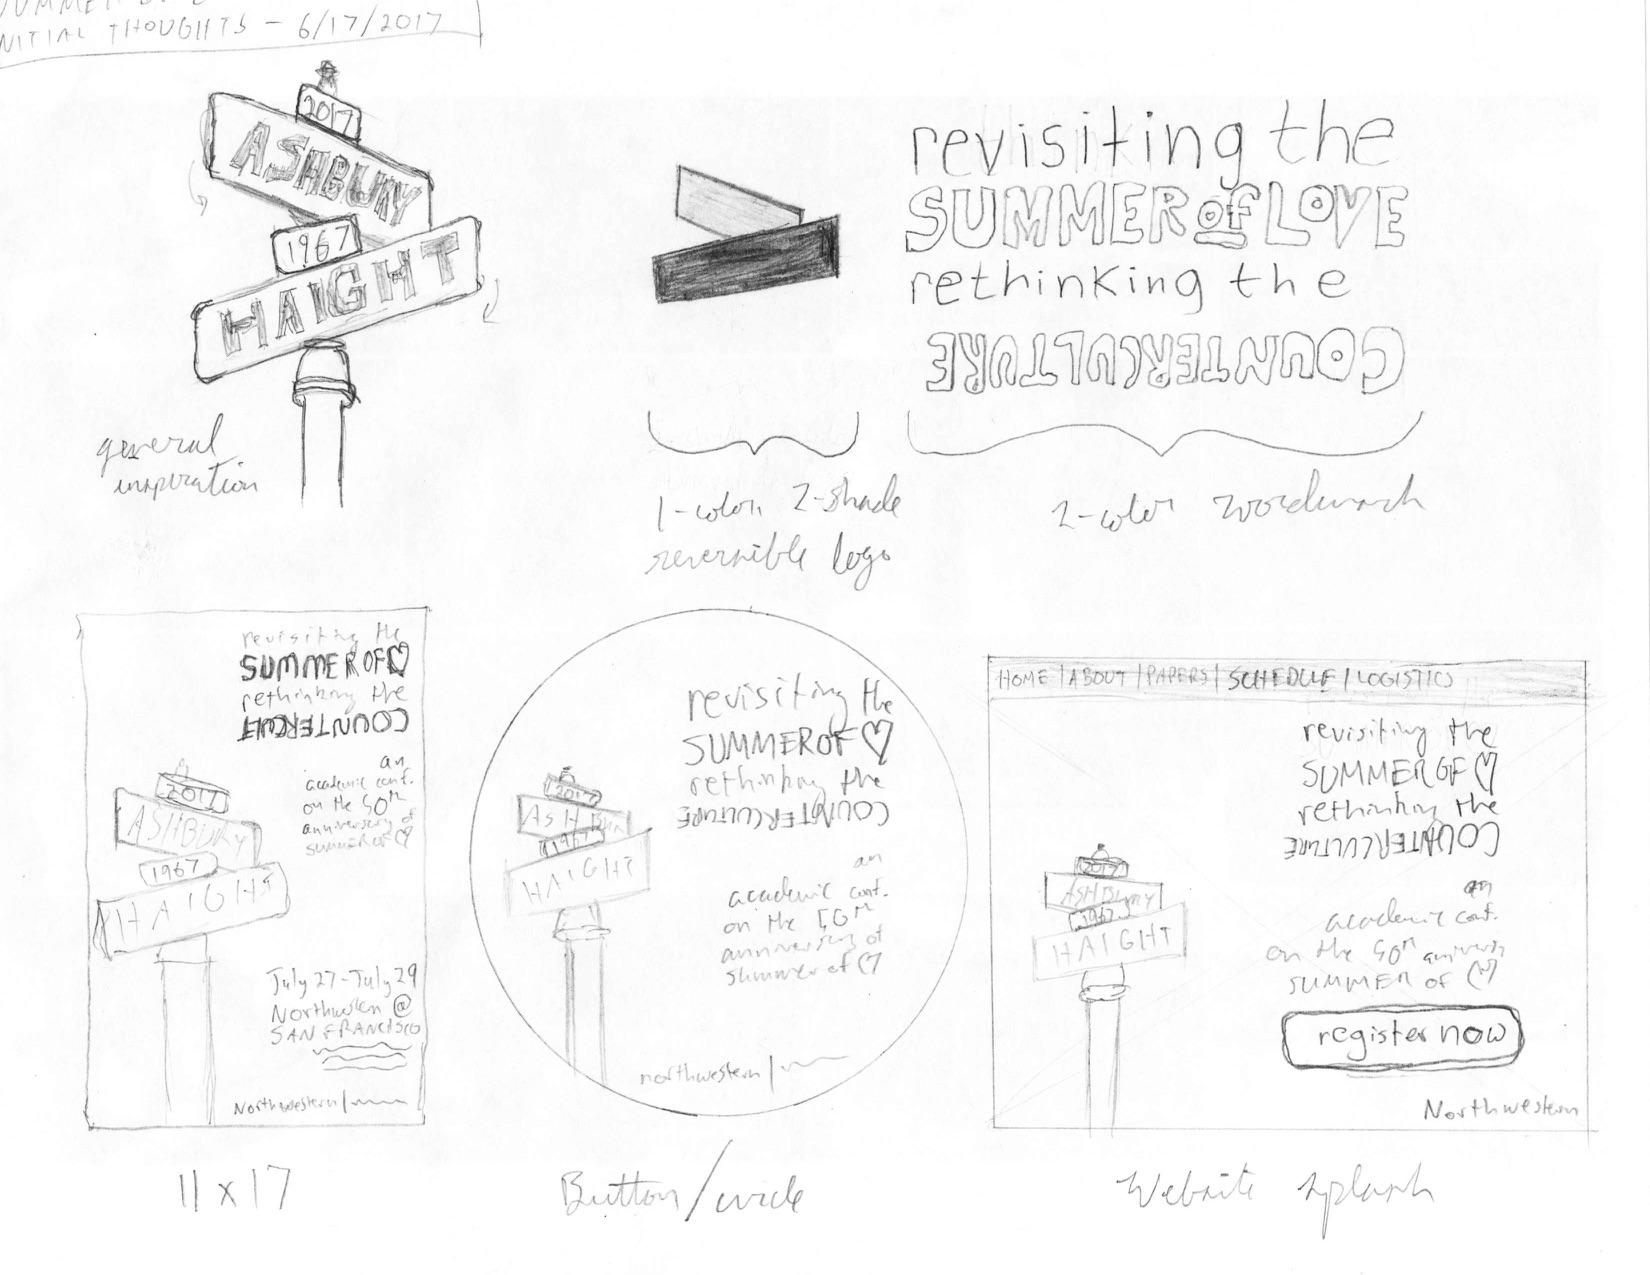 SUMMER
INITIAL THOUGHTS - 6/17/2017
2017
ASHBURY
1967
HAIGHT
general
inspiration
1-color, 2-shade
reversible logo
revisiting the
SUMMER OF LOVE
rethinking the
COUNTERCULTURE
2-color wordmark
revisiting the
SUMMER OF ♡
rethinking the
COUNTERCULT
an
academic conf.
on the 50th
anniversary of
summer of ♡
2017
ASHBURY
1967
HAIGHT
July 27-July 29
Northwestern @
SAN FRANCISCO
Northwestern |
11 x 17
revisiting the
SUMMER OF ♡
rethinking the
COUNTERCULTURE
2017
ASHBURY
1967
HAIGHT
an
academic conf.
on the 50th
anniversary of
summer of ♡
northwestern |
Button/circle
HOME | ABOUT | PAPERS | SCHEDULE | LOGISTICS
revisiting the
SUMMER OF ♡
rethinking the
COUNTERCULTURE
2017
ASHBURY
1967
HAIGHT
an
academic conf.
on the 50th anniversy
SUMMER OF ♡
register now
Northwestern
Website splash